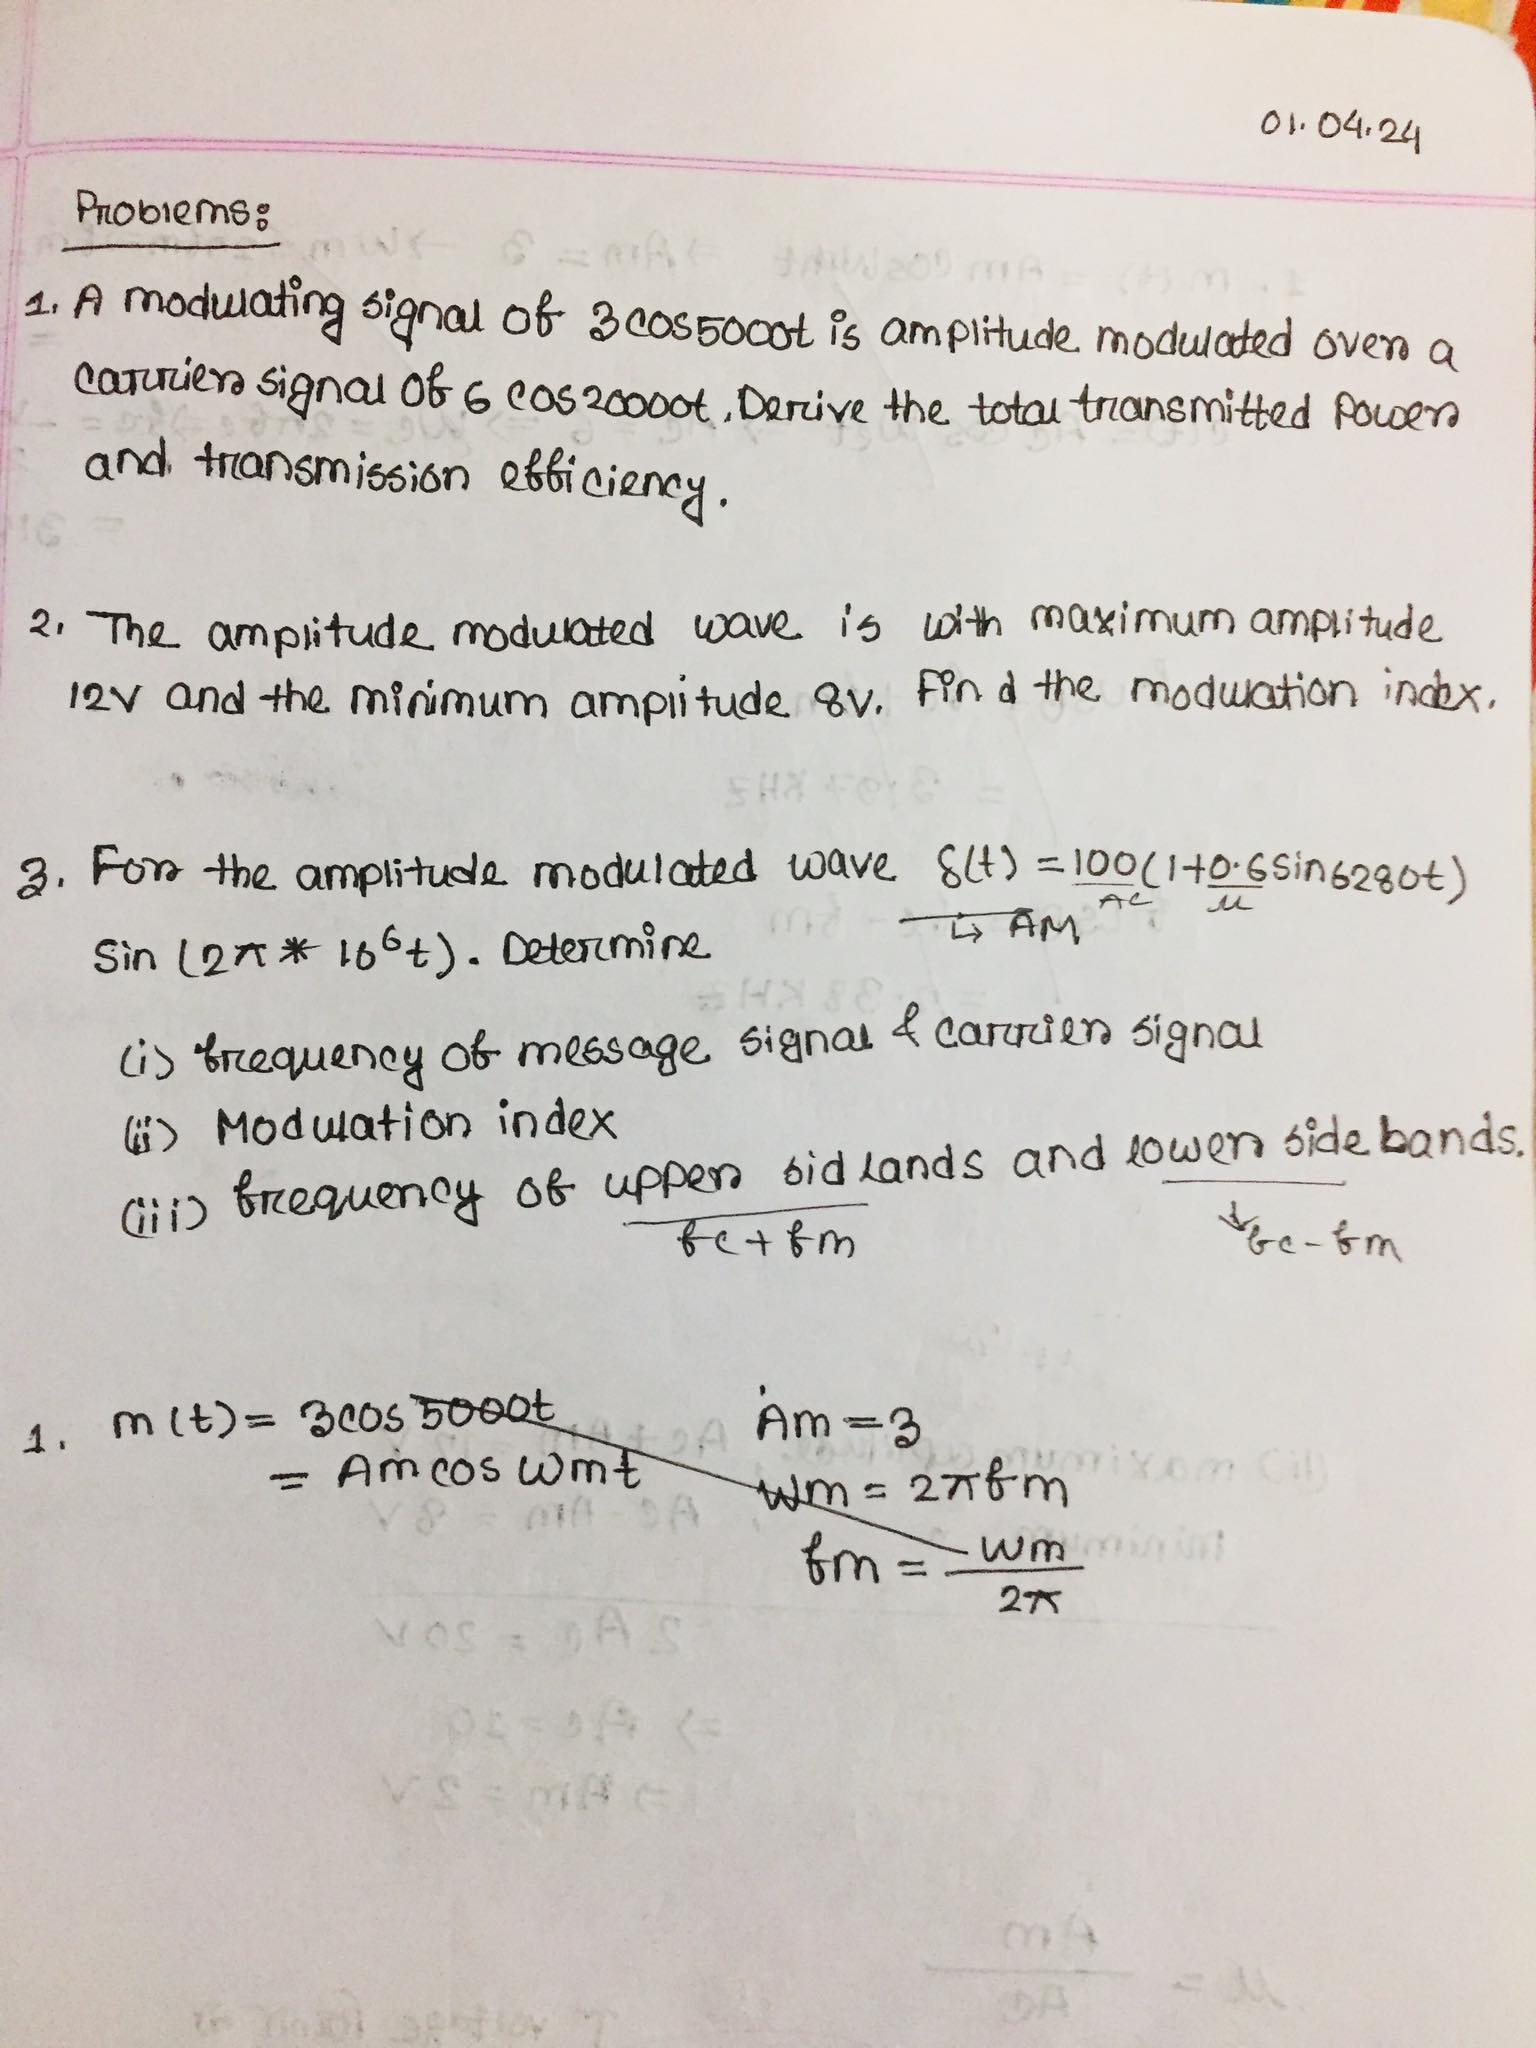 01.04.24
Problems:
1. A modulating signal of 3cos5000t is amplitude modulated over a
carrier signal of 6 cos20000t. Derive the total transmitted Power
and transmission efficiency.
2. The amplitude modulated wave is with maximum amplitude
12V and the minimum amplitude 8V. Find the modulation index.
3. For the amplitude modulated wave S(t) = 100(1+0.6sin6280t)
Ac μ
↳ AM
Sin (2π * 10⁶t). Determine
(i) frequency of message signal & carrier signal
(ii) Modulation index
(iii) frequency of upper sid lands and lower side bands.
fc + fm
↓ fc - fm
1. m(t) = 3cos 5000t Am = 3
= Am cos Wmt Wm = 2πfm
fm = Wm/2π